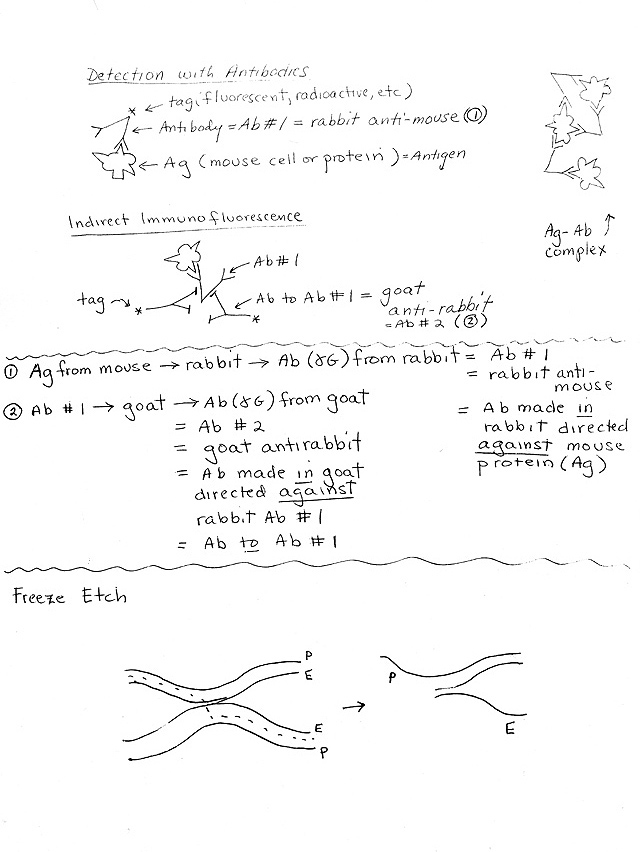 Detection with Antibodies
* ← tag (fluorescent, radioactive, etc)
← Antibody = Ab #1 = rabbit anti-mouse ①
← Ag (mouse cell or protein) = Antigen
Ag-Ab ↑
complex
Indirect Immunofluorescence
Ab #1
tag → *
Ab to Ab #1 = goat
anti-rabbit
= Ab # 2 (②)
*
① Ag from mouse → rabbit → Ab (γG) from rabbit = Ab # 1
= rabbit anti-
mouse
= Ab made in
rabbit directed
against mouse
protein (Ag)
② Ab #1 → goat → Ab (γG) from goat
= Ab # 2
= goat antirabbit
= Ab made in goat
directed against
rabbit Ab # 1
= Ab to Ab # 1
Freeze Etch
P
E
E
P
→
P
E